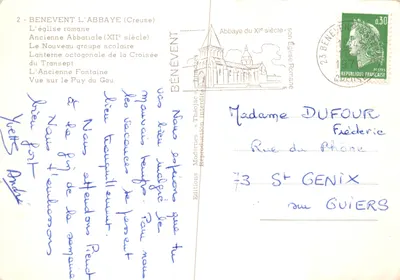 2 - BENEVENT L'ABBAYE (Creuse)
L'église romane
Ancienne Abbatiale (XIIe siècle)
Le Nouveau groupe scolaire
Lanterne octogonale de la Croisée
du Transept
L'Ancienne Fontaine
Vue sur le Puy du Gou
BENEVENT
Abbaye du XIe siècle
0,30
REPUBLIQUE FRANÇAISE
23 BENEVENT
Nous espérons que tu
vas bien malgré le
mauvais temps. Pour nous
les vacances se passent
bien tranquillement
Nous attendons
à la fin de la semaine
Nous t'embrassons
bien fort
Yvette André
Madame DUFOUR
Frédéric
Rue du Rhône
73 St GENIX
sur GUIERS